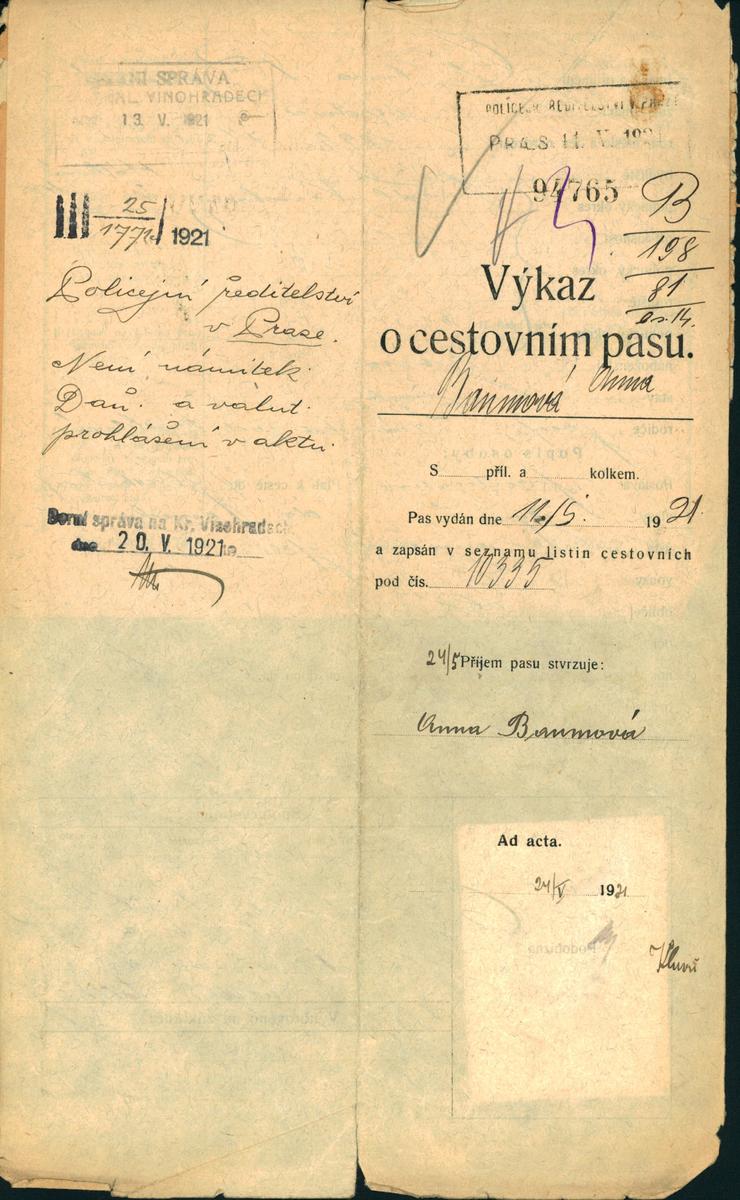 SPRÁVA
VINOHRADECH
13. V. 1921
III 25/177 1921
Policejní ředitelství
v Praze.
Není námitek.
Daň. a valut.
prohlášení v aktu.
Berní správa na Kr. Vinohradech
dne 20. V. 1921
POLICEJNÍ ŘEDITELSTVÍ V PRAZE
PRAES 11. V. 1921
94765
B
198
81
Výkaz
o cestovním pasu.
Baumová Anna
S příl. a kolkem.
Pas vydán dne 1921.
a zapsán v seznamu listin cestovních
pod čís. 10335
24/5 Příjem pasu stvrzuje:
Anna Baumová
Ad acta.
24/V 1921
Podobizna